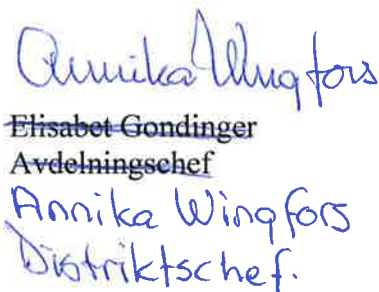 Annika Wingfors
Elisabet Gondinger
Avdelningschef
Annika Wingfors
Distriktschef.